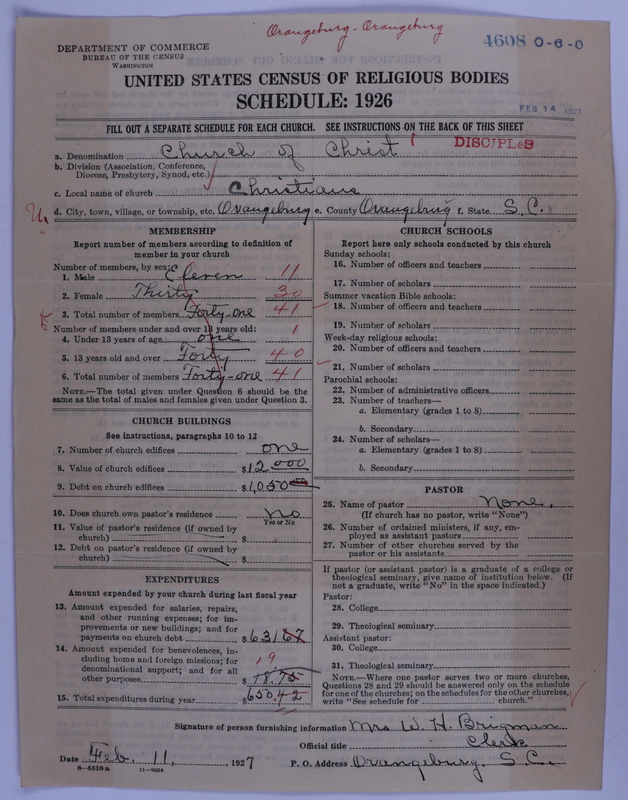 Orangeburg - Orangeburg
4608 0-6-0
DEPARTMENT OF COMMERCE
BUREAU OF THE CENSUS
WASHINGTON
UNITED STATES CENSUS OF RELIGIOUS BODIES
SCHEDULE: 1926
FEB 14 1927
FILL OUT A SEPARATE SCHEDULE FOR EACH CHURCH. SEE INSTRUCTIONS ON THE BACK OF THIS SHEET
a. Denomination Church of Christ DISCIPLES
b. Division (Association, Conference,
Diocese, Presbytery, Synod, etc.)
c. Local name of church Christians
d. City, town, village, or township, etc. Orangeburg e. County Orangeburg f. State S.C.
MEMBERSHIP
Report number of members according to definition of
member in your church
Number of members, by sex:
1. Male Eleven 11
2. Female Thirty 30
3. Total number of members Forty-one 41
Number of members under and over 13 years old:
4. Under 13 years of age one 1
5. 13 years old and over Forty 40
6. Total number of members Forty-one 41
NOTE.—The total given under Question 6 should be
same as the total of males and females given under Question 3.
CHURCH BUILDINGS
See instructions, paragraphs 10 to 12
7. Number of church edifices one
8. Value of church edifices $12000
9. Debt on church edifices $1,050
10. Does church own pastor's residence No
Yes or No
11. Value of pastor's residence (if owned by
church) $
12. Debt on pastor's residence (if owned by
church) $
EXPENDITURES
Amount expended by your church during last fiscal year
13. Amount expended for salaries, repairs,
and other running expenses; for im-
provements or new buildings; and for
payments on church debt $631.67
14. Amount expended for benevolences, in-
cluding home and foreign missions; for
denominational support; and for all
other purposes 19 $18.75
15. Total expenditures during year $650.42
CHURCH SCHOOLS
Report here only schools conducted by this church
Sunday schools:
16. Number of officers and teachers
17. Number of scholars
Summer vacation Bible schools:
18. Number of officers and teachers
19. Number of scholars
Week-day religious schools:
20. Number of officers and teachers
21. Number of scholars
Parochial schools:
22. Number of administrative officers
23. Number of teachers—
a. Elementary (grades 1 to 8)
b. Secondary
24. Number of scholars—
a. Elementary (grades 1 to 8)
b. Secondary
PASTOR
25. Name of pastor None.
(If church has no pastor, write "None")
26. Number of ordained ministers, if any, em-
ployed as assistant pastors
27. Number of other churches served by the
pastor or his assistants
If pastor (or assistant pastor) is a graduate of a college or
theological seminary, give name of institution below. (If
not a graduate, write "No" in the space indicated.)
Pastor:
28. College
29. Theological seminary
Assistant pastor:
30. College
31. Theological seminary
NOTE.—Where one pastor serves two or more churches,
Questions 28 and 29 should be answered only on the schedule
for one of the churches; on the schedules for the other churches,
write "See schedule for church."
Signature of person furnishing information Mrs W. H. Brigman
Official title Clerk
Date Feb. 11, 1927 P. O. Address Orangeburg, S.C.
8—5518a 11—9264